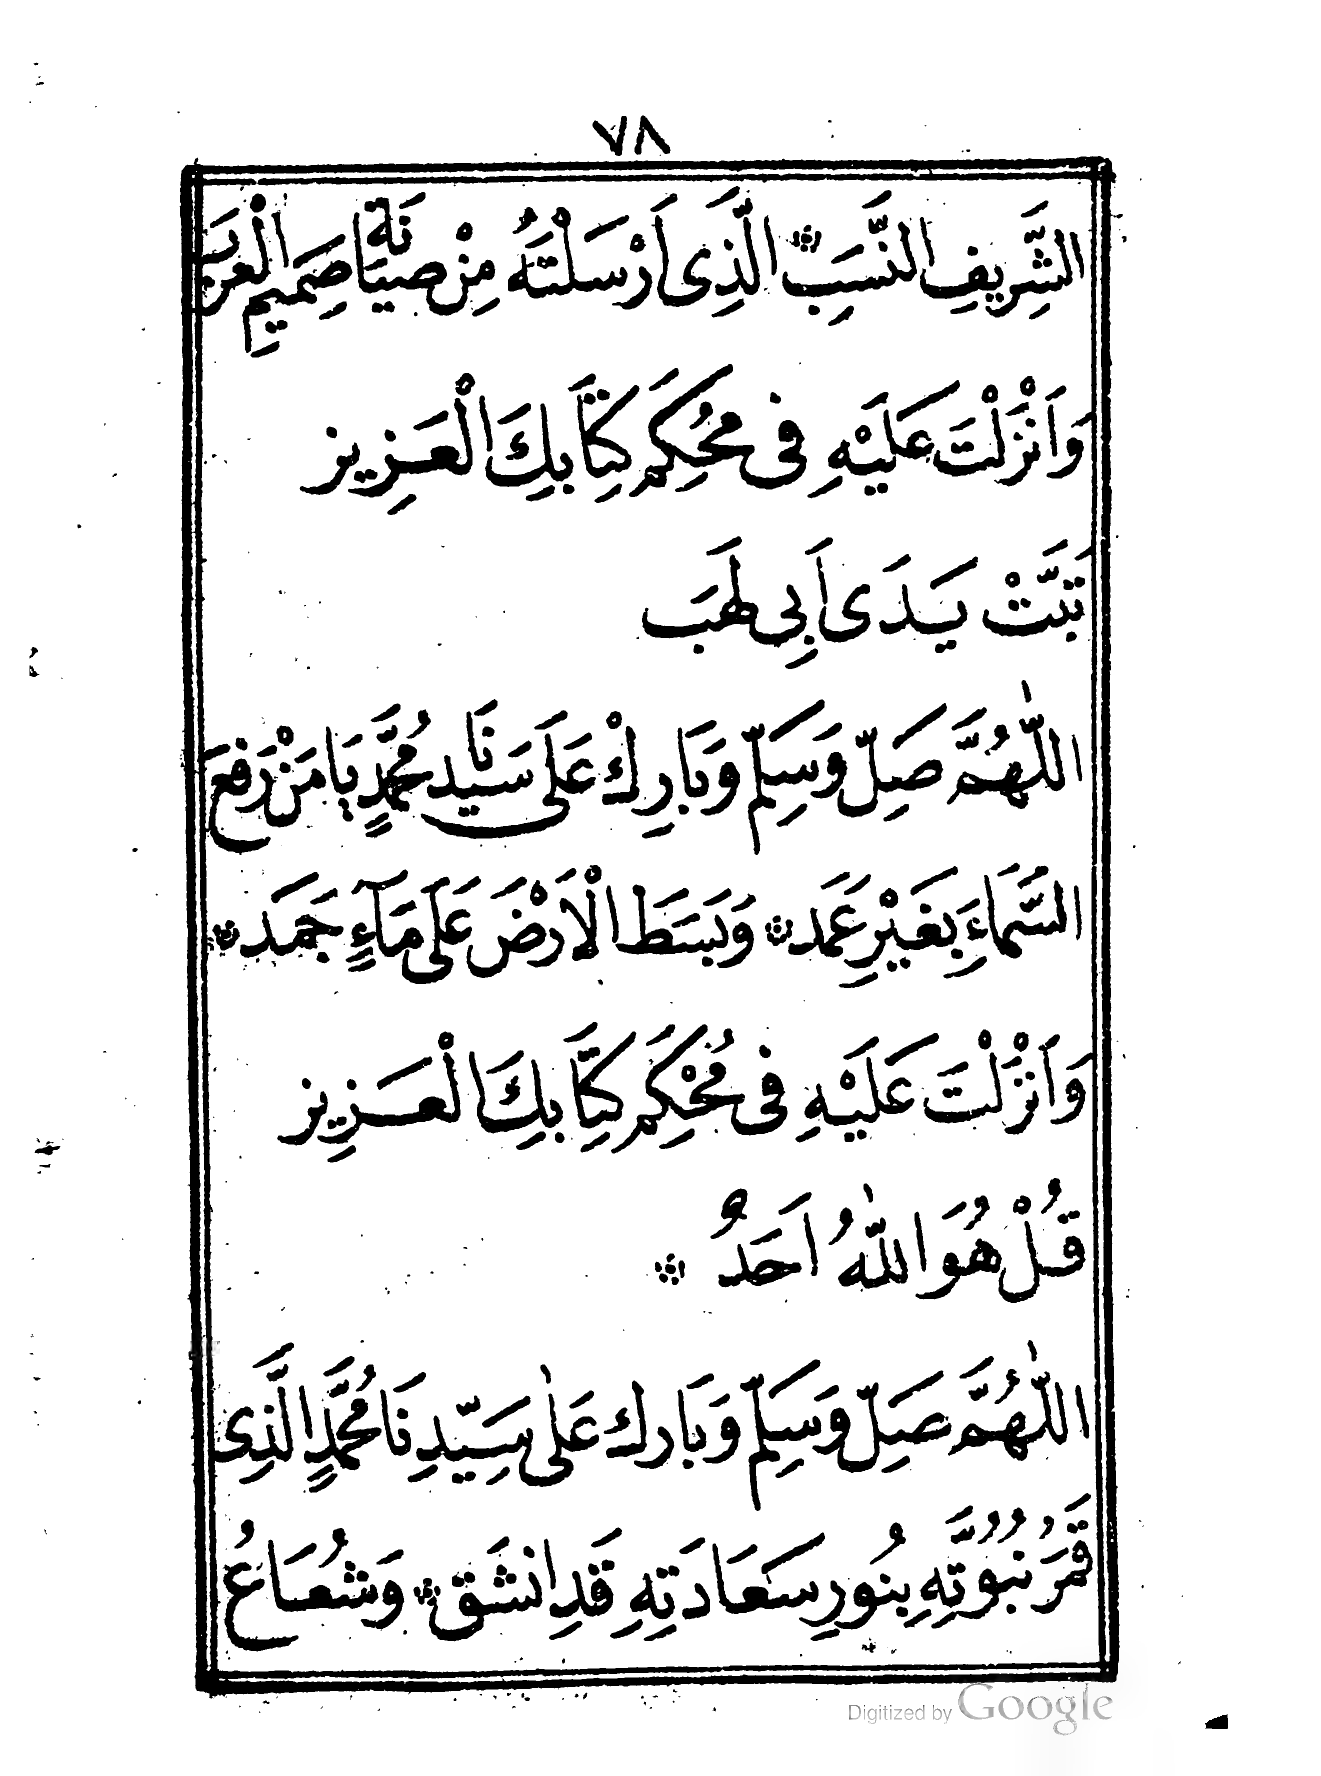 ٧٨
الشَّرِيفِ النَّسَبِ ۞ الَّذِى اَرْسَلْتَهُ مِنْ صِيَانَةِ صَمِيمِ الْعَرَبِ
وَاَنْزَلْتَ عَلَيْهِ فِى مُحْكَمِ كِتَابِكَ الْعَزِيزِ
تَبَّتْ يَدَى اَبِى لَهَب
اَللّٰهُمَّ صَلِّ وَسَلِّمْ وَبَارِكْ عَلَى سَيِّدِنَا مُحَمَّدٍ يَا مَنْ رَفَعَ
السَّمَاءَ بِغَيْرِ عَمَد ۞ وَبَسَطَ الْاَرْضَ عَلَى مَآءٍ جَمَد ۞
وَاَنْزَلْتَ عَلَيْهِ فِى مُحْكَمِ كِتَابِكَ الْعَزِيزِ
قُلْ هُوَ اللّٰهُ اَحَدٌ ۞
اَللّٰهُمَّ صَلِّ وَسَلِّمْ وَبَارِك عَلٰى سَيِّدِنَا مُحَمَّدٍ الَّذِى
قَمَرُ نُبُوَّتِهِ بِنُورِ سَعَادَتِهِ قَدِ انْشَق ۞ وَشُعَاعُ
Digitized by Google